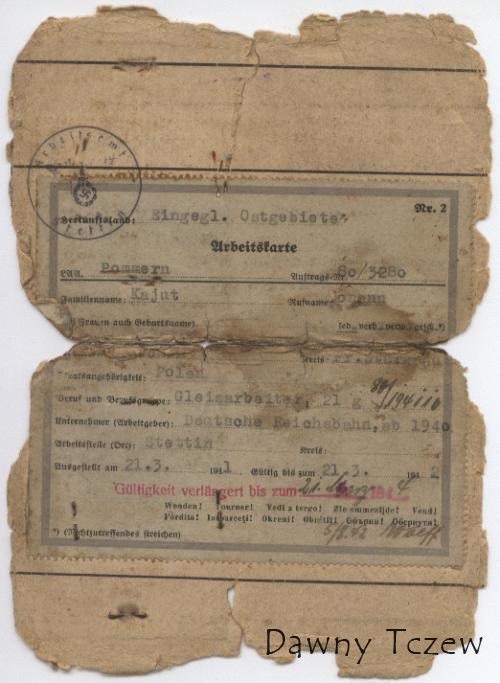 Arbeitsamt
Stettin
Herkunftsland: Eingegl. Ostgebiete
Nr. 2
Arbeitskarte
LAA. Pommern Auftrags-Nr. 80/3280
Familienname: Kajut Rufname: ohann
Frauen auch Geburtsname) led. verh. verw. gesch.*)
Kreis:
Staatsangehörigkeit: Polen
Beruf und Berufsgruppe: Gleisarbeiter, 21 g
Unternehmer (Arbeitgeber): Deutsche Reichsbahn, ab 1940
Arbeitsstelle (Ort): Stettin Kreis:
Ausgestellt am 21.3. 1941 Gültig bis zum 21.3. 1942
Gültigkeit verlängert bis zum 21. März 194
Wenden! Tourner! Vedi a tergo! Zie ommezijde! Vend!
Fördits! Intoarceți! Okreni! Obrátit! Обърни! Обернути!
*) (Nichtzutreffendes streichen)
Dawny Tczew